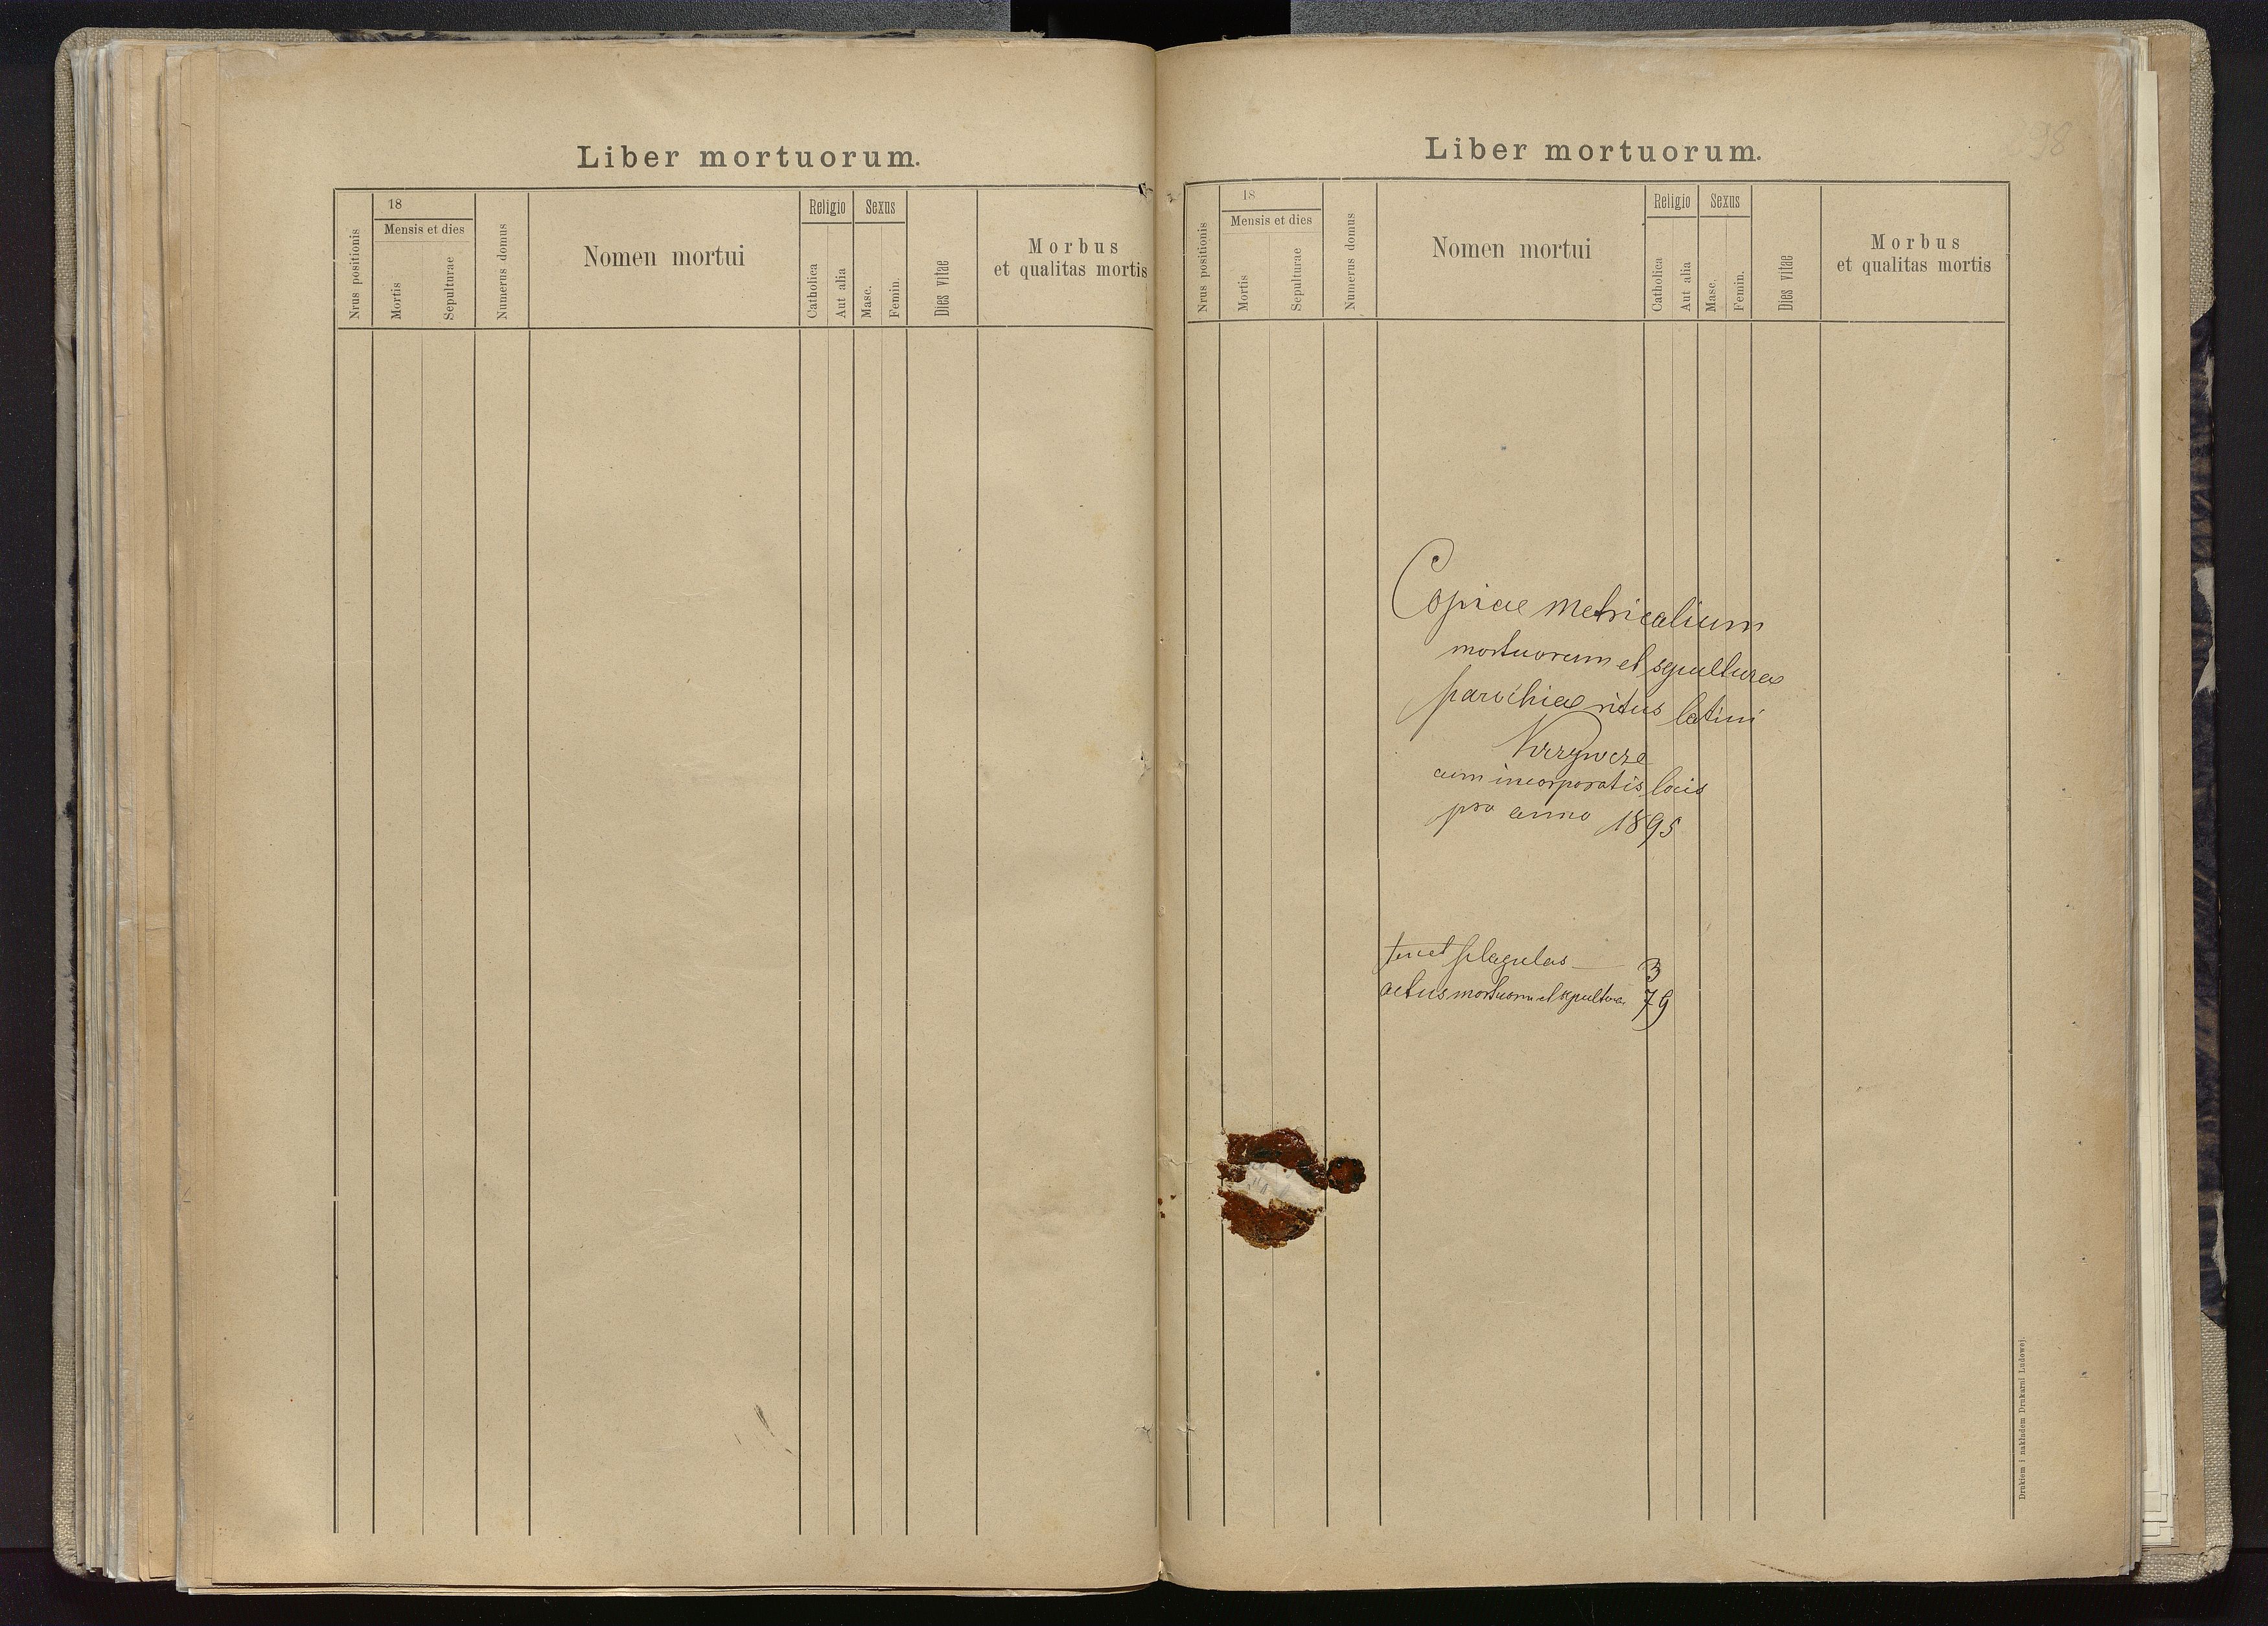 Liber mortuorum.
Nrus positionis
18
Mensis et dies
Mortis
Sepulturae
Numerus domus
Nomen mortui
Religio
Catholica
Aut alia
Sexus
Masc.
Femin.
Dies vitae
Morbus
et qualitas mortis
Liber mortuorum.
98
Nrus positionis
18
Mensis et dies
Mortis
Sepulturae
Numerus domus
Nomen mortui
Religio
Catholica
Aut alia
Sexus
Masc.
Femin.
Dies vitae
Morbus
et qualitas mortis
Copiae metricalium
mortuorum et sepulturae
parochiae ritus latini
Krzywcze
cum incorporatis locis
pro anno 1895
tenet plagulas — 3
actus mortuorum et sepulturae 79
Drukiem i nakładem Drukarni Ludowej.